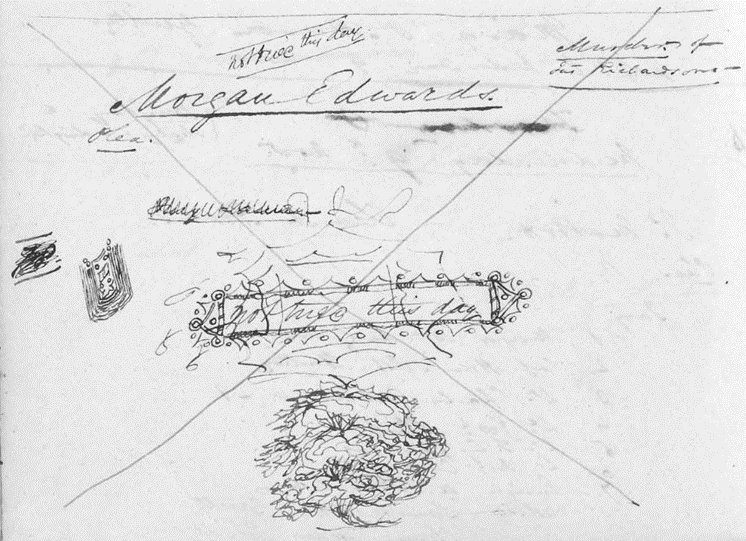 not true this day
Murders of
Jas Richardsons
Morgan Edwards.
Plea.
not true this day